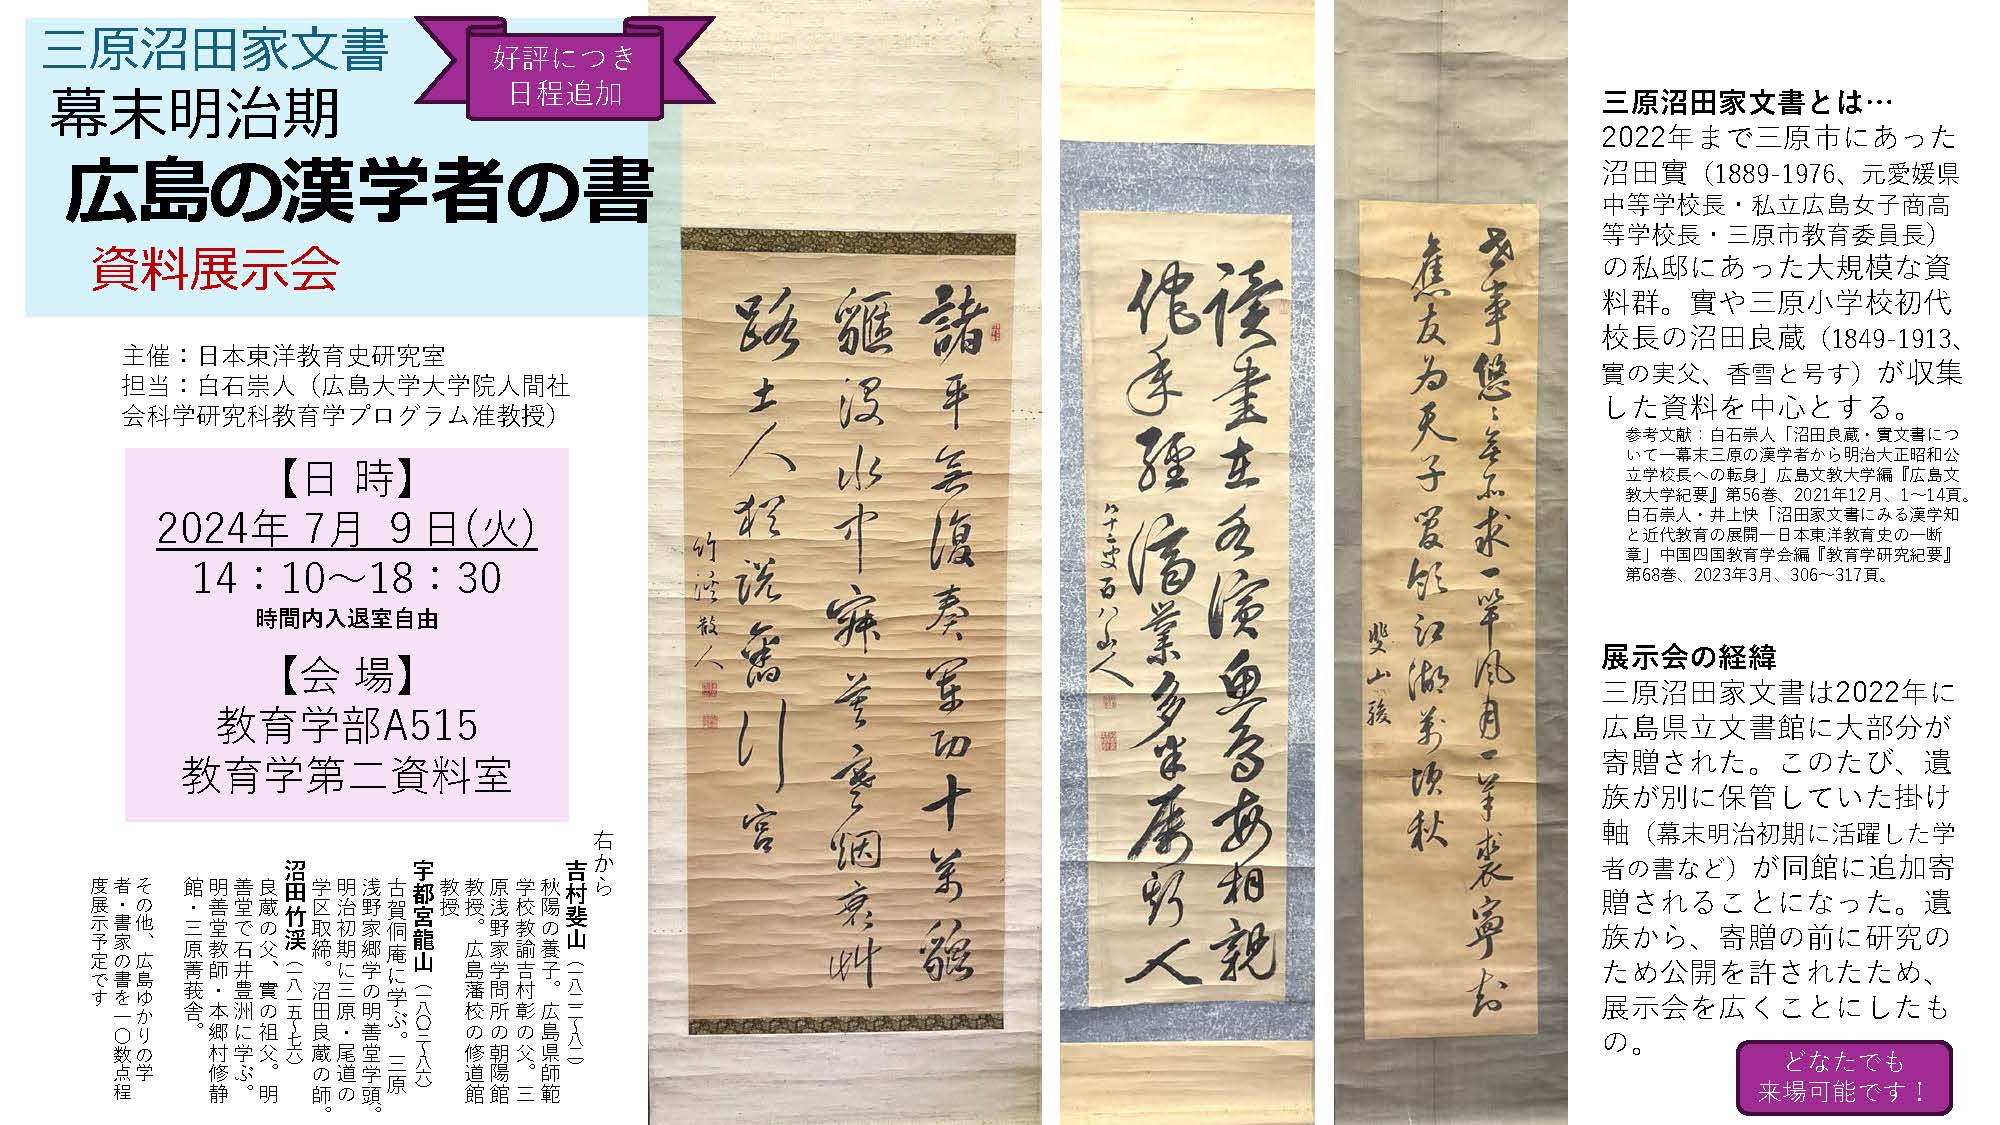 三原沼田家文書
幕末明治期
広島の漢学者の書
資料展示会
好評につき
日程追加
主催：日本東洋教育史研究室
担当：白石崇人（広島大学大学院人間社
会科学研究科教育学プログラム准教授）
【日 時】
2024年 7月 9日(火)
14：10～18：30
時間内入退室自由
【会 場】
教育学部A515
教育学第二資料室
右から
吉村斐山（一八二二～八二）
秋陽の養子。広島県師範
学校教諭吉村彰の父。三
原浅野家学問所の朝陽館
教授。広島藩校の修道館
教授
宇都宮龍山（一八〇三～八六）
古賀侗庵に学ぶ。三原
浅野家郷学の明善堂学頭。
明治初期に三原・尾道の
学区取締。沼田良蔵の師。
沼田竹渓（一八一五～七六）
良蔵の父、實の祖父。明
善堂で石井豊洲に学ぶ。
明善堂教師・本郷村修静
館・三原菁莪舎。
その他、広島ゆかりの学
者・書家の書を一〇数点程
度展示予定です
諸平無復奏軍功十万
没水中寐苦寒烟衰艸
路土人猶説旧行宮
竹渓散人
読書在名演魚鳥相親
作年経済業多半属別人
八十二叟百八山人
世事悠々無不求一竿風月一羊裘寧知
旧友為天子占領江湖万頃秋
斐山駿
三原沼田家文書とは…
2022年まで三原市にあった
沼田實（1889-1976、元愛媛県
中等学校長・私立広島女子商高
等学校長・三原市教育委員長）
の私邸にあった大規模な資
料群。實や三原小学校初代
校長の沼田良蔵（1849-1913、
實の実父、香雪と号す）が収集
した資料を中心とする。
参考文献：白石崇人「沼田良蔵・實文書につ
いて―幕末三原の漢学者から明治大正昭和公
立学校長への転身」広島文教大学編『広島文
教大学紀要』第56巻、2021年12月、1～14頁。
白石崇人・井上快「沼田家文書にみる漢学知
と近代教育の展開―日本東洋教育史の一断
章」中国四国教育学会編『教育学研究紀要』
第68巻、2023年3月、306～317頁。
展示会の経緯
三原沼田家文書は2022年に
広島県立文書館に大部分が
寄贈された。このたび、遺
族が別に保管していた掛け
軸（幕末明治初期に活躍した学
者の書など）が同館に追加寄
贈されることになった。遺
族から、寄贈の前に研究の
ため公開を許されたため、
展示会を広くことにしたも
の。
どなたでも
来場可能です！